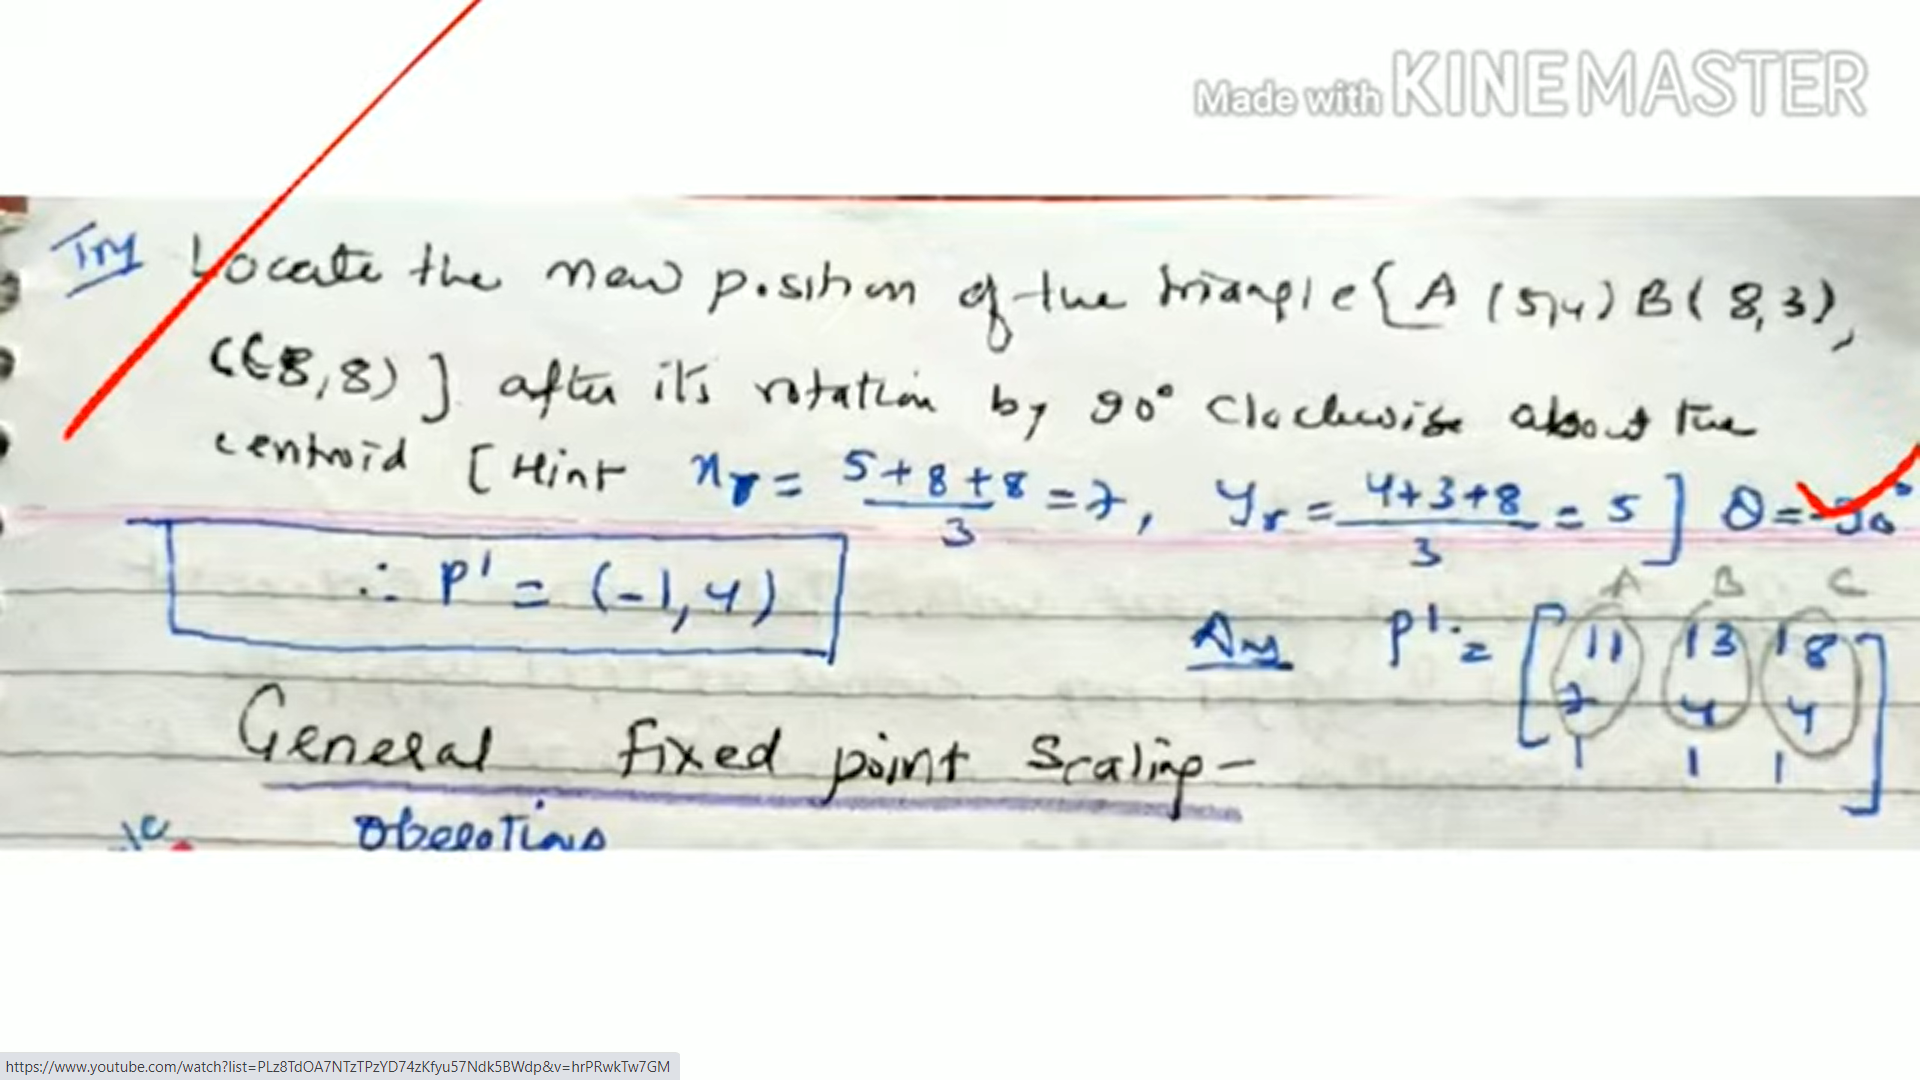 Made with KINEMASTER
Try Locate the new position of the triangle [A (5,4) B(8,3),
C(8,8)] after it's rotation by 90° clockwise about the
centroid [Hint xr = 5+8+8/3 = 7, yr = 4+3+8/3 = 5] θ = -90°
∴ P' = (-1,4)
A B C
Ans P' = [11 13 18
7 4 4
1 1 1]
General fixed point Scaling-
https://www.youtube.com/watch?list=PLz8TdOA7NTzTPzYD74zKfyu57Ndk5BWdp&v=hrPRwkTw7GM